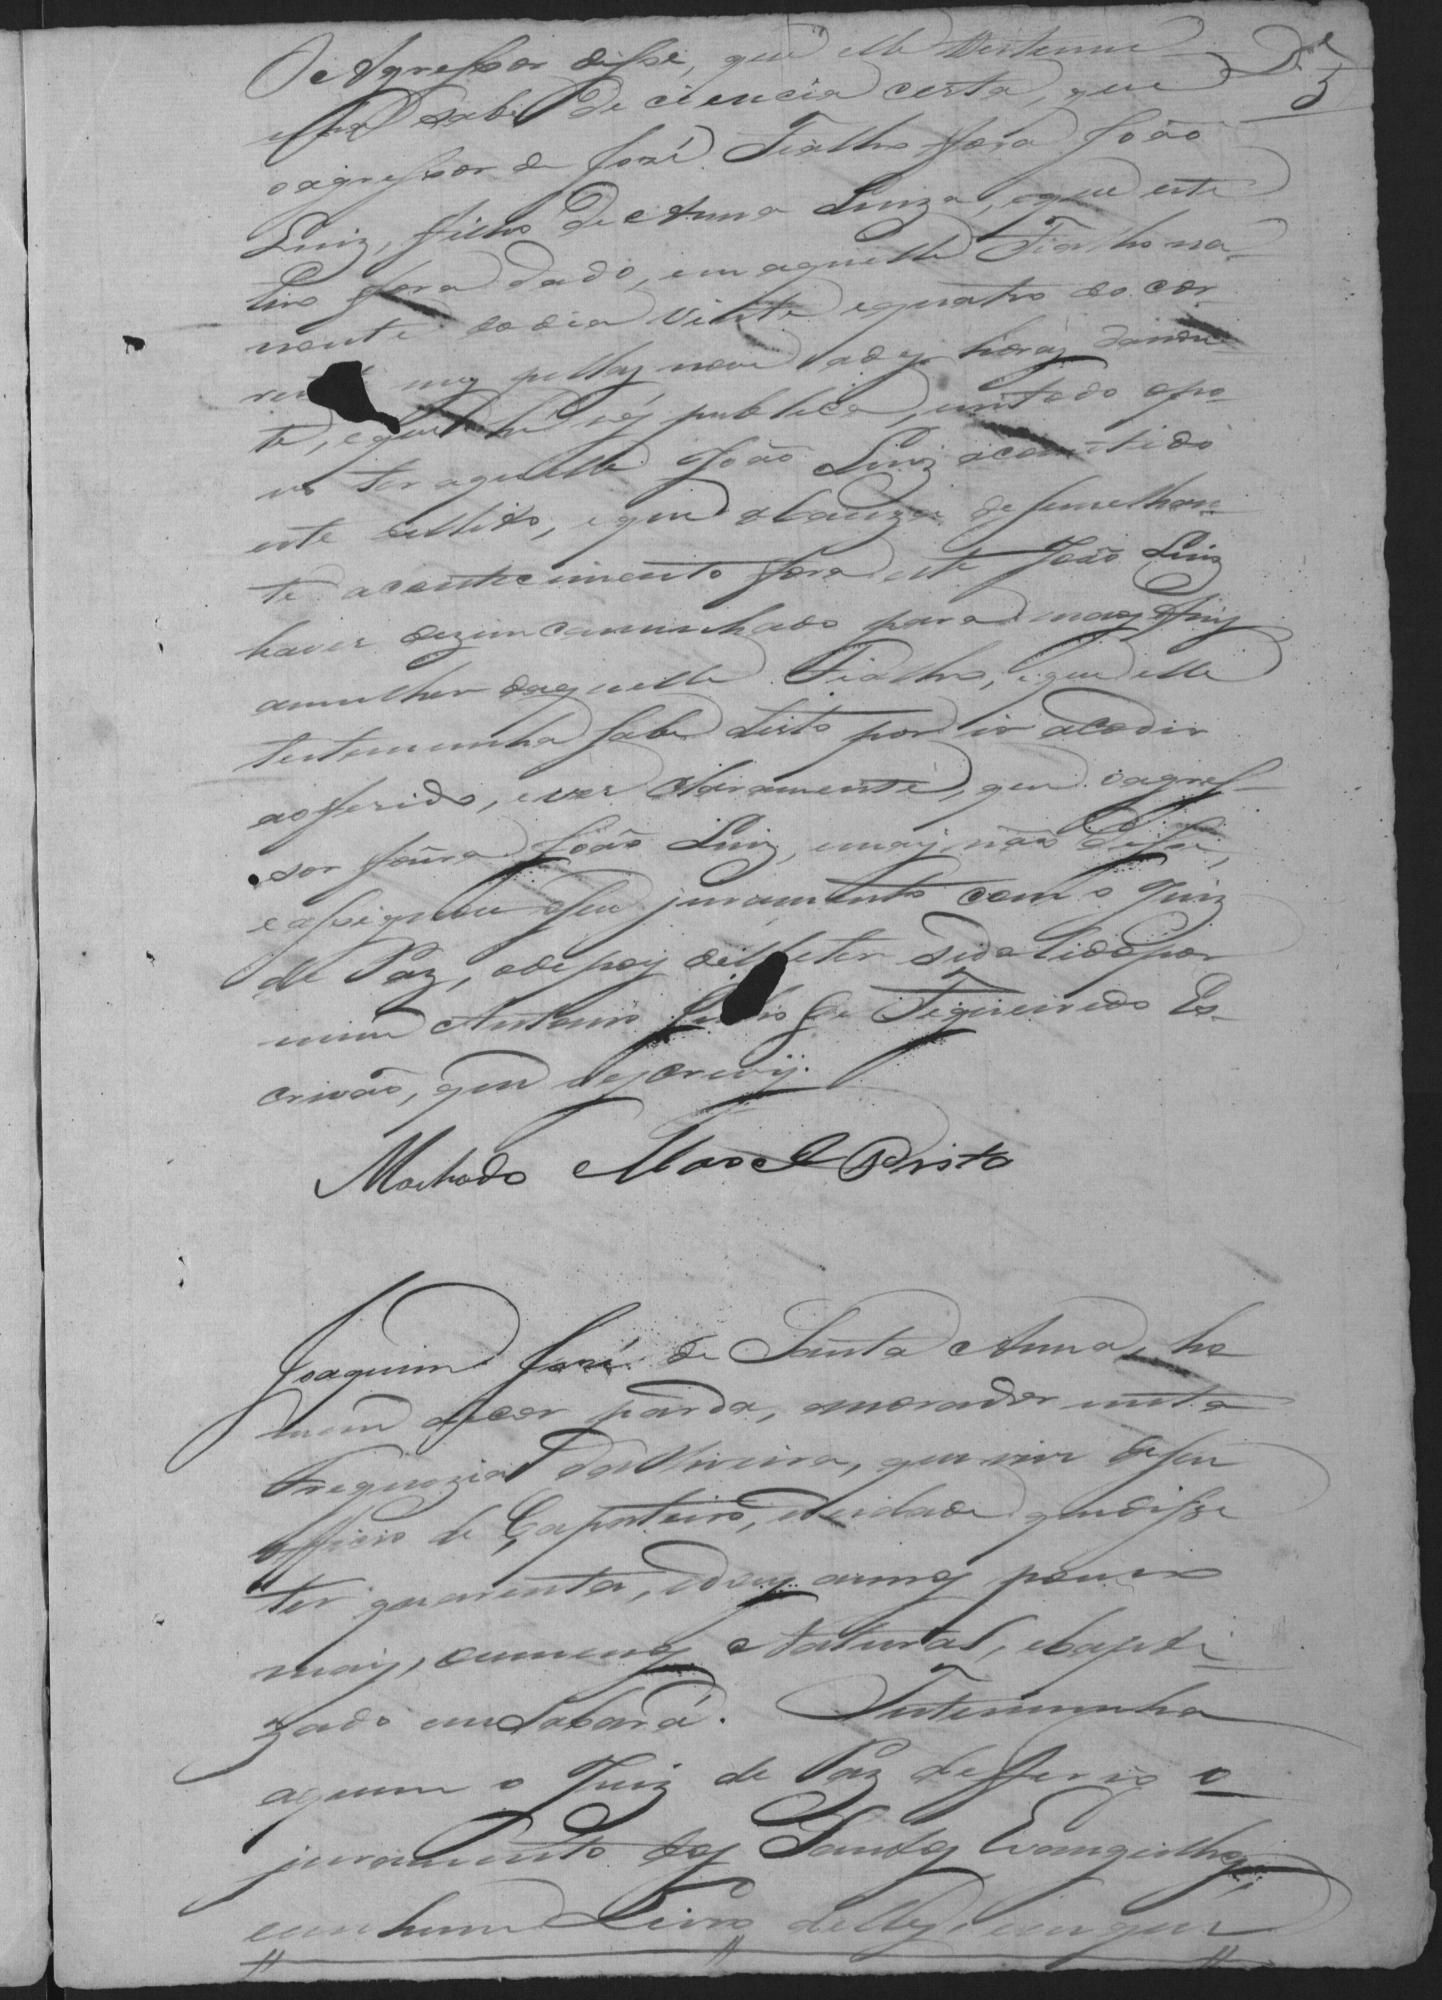 5
O Agressor disse, que elle testemu
nha sabe de ciencia certa, que
o agressor de José Fialho fora João
Luiz, filho de Anna Luiza, e que este
tiro fora dado, em aquelle Fialho na
noute do dia vinte e quatro do cor
mez pellas nove a dez horas da noi
te, e que hé vós publica, 
ter aquelle João Luiz acomitido
este dellito, e que a cauza de semelhan
te acontecimento fora este João Luiz
haver dezencaminhado para maos fins
a mulher daquelle Fialho, e que elle
testemunha sabe disto por ir acodir
ao ferido, e ver claramente, que o agres
sor fôura João Luiz, e mais não disse,
e assignou o seu juramento com o Juiz
de Paz, e depoes de lhe ter sido lido por
mim Antonio de Figueiredo Es
crivão, que o escrevy.
Machado Mano el Pinto
Joaquim José de Santa Anna, ho
mem de cor parda, morador nesta
Freguezia da que vive de seu
officio de Carpinteiro, e de idade que disse
ter quarenta, e dous annos pouco
mais, ou menos Natural, e bapti
zado em Sabará. Testemunha
a quem o Juiz de Paz defferio o
juramento dos Santos Evangelhos,
em hum Livro delles, em que